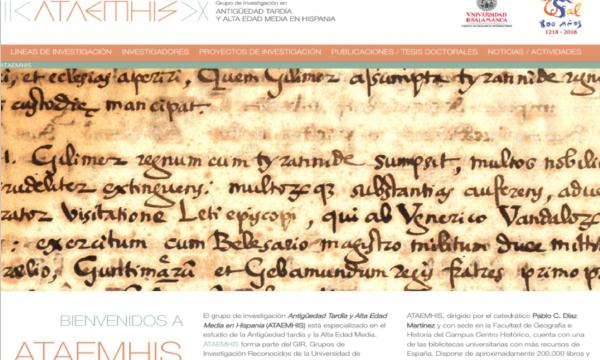 ATAEMHIS
Grupo de Investigación en
ANTIGÜEDAD TARDÍA
Y ALTA EDAD MEDIA EN HISPANIA
VNiVERSiDAD
D SALAMANCA
CAMPUS DE EXCELENCIA INTERNACIONAL
800 AÑOS
1218 - 2018
LÍNEAS DE INVESTIGACIÓN INVESTIGADORES PROYECTOS DE INVESTIGACIÓN PUBLICACIONES / TESIS DOCTORALES NOTICIAS / ACTIVIDADES
ATAEMHIS
et ecclesias aperiri, Quem Gilimer assumpta tyrannide regn
custodię mancipat.
1. Gilimer regnum cum tyrannide sumpsit, multos nobiliu
rudeliter extinguens: multorumque substantias auferens, adue
rator visitatione Leti episcopi, qui ab Vgnerico Vandaloru
: exercitum cum Belesario magistro militum duce mitte
rælio, Gunttimarum et Gebamundum regis fratres primo p
BIENVENIDOS A
ATAEMHIS
El grupo de investigación Antigüedad Tardía y Alta Edad
Media en Hispania (ATAEMHIS) está especializado en el
estudio de la Antigüedad tardía y la Alta Edad Media.
ATAEMHIS forma parte del GIR, Grupos de
Investigación Reconocidos de la Universidad de
ATAEMHIS, dirigido por el catedrático Pablo C. Díaz
Martínez y con sede en la Facultad de Geografía e
Historia del Campus Centro Histórico, cuenta con una
de las bibliotecas universitarias con más recursos de
España. Dispone de aproximadamente 200.000 libros y